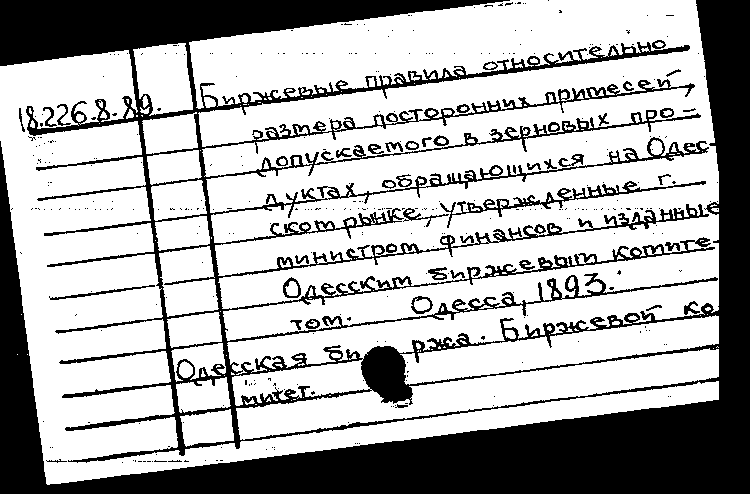 18.226.8.89. Биржевые правила относительно
размера посторонних примесей,
допускаемого в зерновых про=
дуктах, обращающихся на Одес-
ском рынке, утвержденные г.
министром финансов и изданные
Одесским биржевым комите-
том. Одесса, 1893.
Одесская биржа. Биржевой ко
митет.